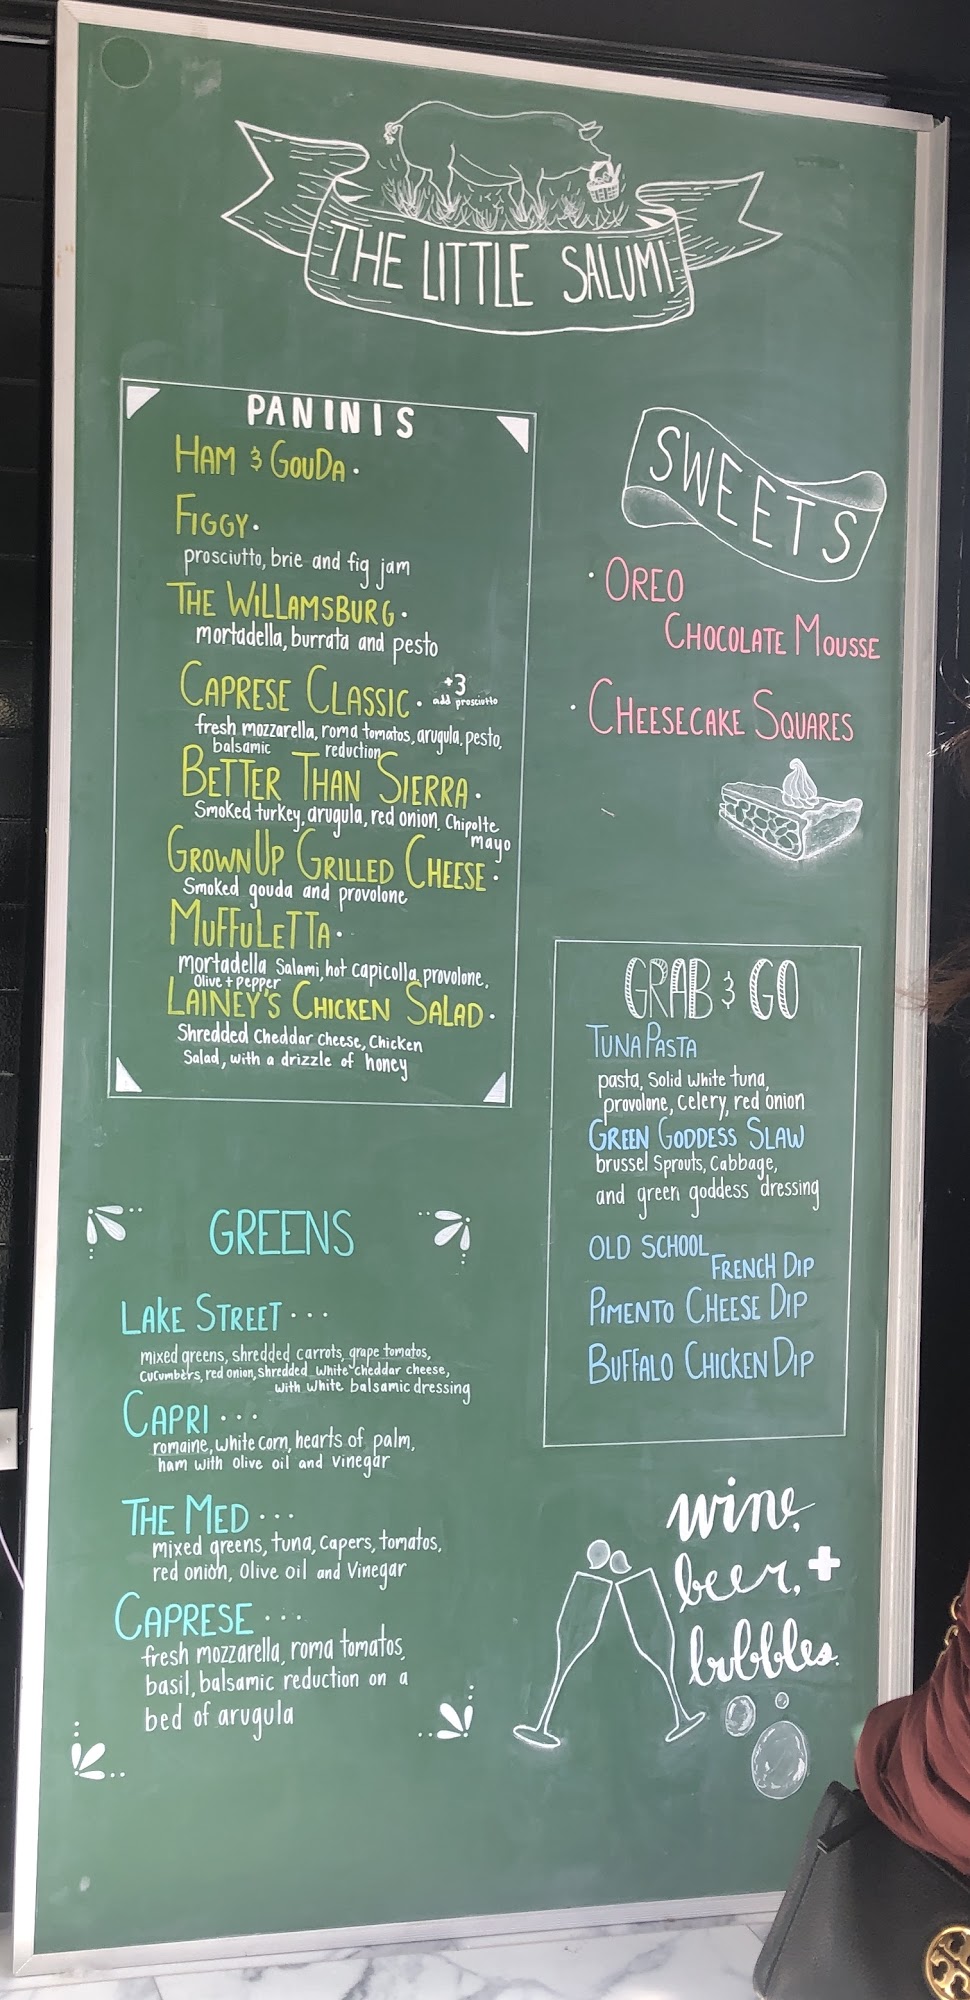 THE LITTLE SALUMI
PANINIS
HAM & GOUDA ·
FIGGY ·
prosciutto, brie and fig jam
THE WILLAMSBURG ·
mortadella, burrata and pesto
CAPRESE CLASSIC · +3
add prosciutto
fresh mozzarella, roma tomatoes, arugula, pesto,
balsamic reduction
BETTER THAN SIERRA ·
Smoked turkey, arugula, red onion, Chipolte
mayo
GROWNUP GRILLED CHEESE ·
Smoked gouda and provolone
MUFFULETTA ·
mortadella, Salami, hot capicolla, provolone,
Olive + pepper
LAINEY'S CHICKEN SALAD ·
Shredded Cheddar cheese, Chicken
Salad, with a drizzle of honey
GREENS
LAKE STREET ···
mixed greens, shredded carrots, grape tomatoes,
Cucumbers, red onion, shredded white cheddar cheese,
with white balsamic dressing
CAPRI ···
romaine, white corn, hearts of palm,
ham with Olive oil and vinegar
THE MED ···
mixed greens, tuna, Capers, tomatos,
red onion, Olive oil and Vinegar
CAPRESE ···
fresh mozzarella, roma tomatos,
basil, balsamic reduction on a
bed of arugula
SWEETS
· OREO
CHOCOLATE MOUSSE
· CHEESECAKE SQUARES
GRAB & GO
TUNA PASTA
pasta, Solid white tuna,
provolone, Celery, red onion
GREEN GODDESS SLAW
brussel Sprouts, Cabbage,
and green goddess dressing
OLD SCHOOL
FRENCH DIP
PIMENTO CHEESE DIP
BUFFALO CHICKEN DIP
wine,
beer, +
bubbles.